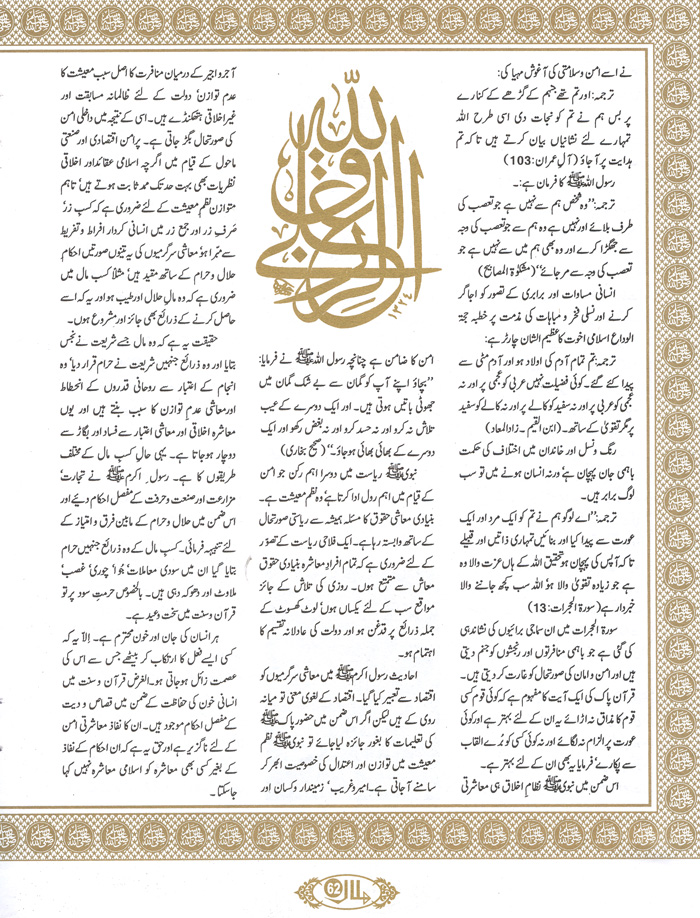 نے اسے امن وسلامتی کی آغوش مہیا کی:
ترجمہ: اور تم تھے جہنم کے گڑھے کے کنارے
پر بس ہم نے تم کو نجات دی اسی طرح اللہ
تمہارے لئے نشانیاں بیان کرتے ہیں تاکہ تم
ہدایت پر آجاؤ (آل عمران: 103)
رسول اللہ ﷺ کا فرمان ہے:۔
ترجمہ: ’’وہ شخص ہم سے نہیں ہے جو تعصب کی
طرف بلائے اور نہیں ہے وہ ہم سے جو تعصب کی وجہ
سے جھگڑا کرے اور وہ بھی ہم میں سے نہیں ہے جو
تعصب کی وجہ سے مر جائے‘‘ (مشکوٰۃ المصابیح)
انسانی مساوات اور برابری کے تصور کو اجاگر
کرنے اور نسلی فخر و مباہات کی مذمت پر خطبہ حجۃ
الوداع اسلامی اخوت کا عظیم الشان چارٹر ہے:
ترجمہ: تم تمام آدم کی اولاد ہو اور آدم مٹی سے
پیدا کئے گئے۔ کوئی فضیلت نہیں عربی کو عجمی پر اور نہ
عجمی کو عربی پر اور نہ سفید کو کالے پر اور نہ کالے کو سفید
پر مگر تقویٰ کے ساتھ۔ (ابن القیم۔ زادالمعاد)
رنگ و نسل اور خاندان میں اختلاف کی حکمت
باہمی جان پہچان ہے‘ ورنہ انسان ہونے میں تو سب
لوگ برابر ہیں۔
ترجمہ: ’’اے لوگو ہم نے تم کو ایک مرد اور ایک
عورت سے پیدا کیا اور بنائیں تمہاری ذاتیں اور قبیلے
تاکہ آپس کی پہچان ہو‘ تحقیق اللہ کے ہاں عزت والا وہ
ہے جو زیادہ تقویٰ والا ہو‘ اللہ سب کچھ جاننے والا
خبردار ہے (سورۃ الحجرات: 13)
سورۃ الحجرات میں ان سماجی برائیوں کی نشاندہی
کی گئی ہے جو باہمی منافرتوں اور رنجشوں کو جنم دیتی
ہیں اور امن وامان کی صورتحال کو غارت کر دیتی ہیں۔
قرآن پاک کی ایک آیت کا مفہوم ہے کہ کوئی قوم کسی
قوم کا مذاق نہ اڑائے یہ ان کے لئے بہتر ہے اور کوئی
عورت پر الزام نہ لگائے اور نہ کوئی کسی کو بُرے القاب
سے پکارے‘ فرمایا یہ بھی ان کے لئے بہتر ہے۔
اس ضمن میں نبوی ﷺ نظامِ اخلاق ہی معاشرتی
واللہ غالب علی امرہ
۱۳۲۴
امن کا ضامن ہے چنانچہ رسول اللہ ﷺ نے فرمایا:
’’بچاؤ اپنے آپ کو گمان سے بے شک گمان میں
جھوٹی باتیں ہوتی ہیں۔ اور ایک دوسرے کے عیب
تلاش نہ کرو اور نہ حسد کرو اور نہ بغض رکھو اور ایک
دوسرے کے بھائی بھائی ہو جاؤ۔‘‘ (صحیح بخاری)
نبوی ﷺ ریاست میں دوسرا اہم رکن جو امن
کے قیام میں اہم رول ادا کرتا ہے‘ وہ نظم معیشت ہے۔
بنیادی معاشی حقوق کا مسئلہ ہمیشہ سے ریاستی صورتحال
کے ساتھ وابستہ رہا ہے۔ ایک فلاحی ریاست کے تصور
کے لئے ضروری ہے کہ تمام افراد معاشرہ بنیادی حقوق
معاش سے متمتع ہوں۔ روزی کی تلاش کے جائز
مواقع سب کے لئے یکساں ہوں‘ لوٹ کھسوٹ کے
جملہ ذرائع پر قدغن ہو اور دولت کی عادلانہ تقسیم کا
اہتمام ہو۔
احادیث رسول اکرم ﷺ میں معاشی سرگرمیوں کو
اقتصاد سے تعبیر کیا گیا۔ اقتصاد کے لغوی معنی تو میانہ
روی کے ہیں لیکن اگر اس ضمن میں حضور پاک ﷺ
کی تعلیمات کا بغور جائزہ لیا جائے تو نبوی ﷺ نظم
معیشت میں توازن اور اعتدال کی خصوصیت ابھر کر
سامنے آ جاتی ہے۔ امیر و غریب‘ زمیندار و کسان اور
آجر و اجیر کے درمیان منافرت کا اصل سبب معیشت کا
عدم توازن‘ دولت کے لئے ظالمانہ مسابقت اور
غیر اخلاقی ہتھکنڈے ہیں۔ اسی کے نتیجہ میں داخلی امن
کی صورتحال بگڑ جاتی ہے۔ پرامن اقتصادی اور صنعتی
ماحول کے قیام میں اگرچہ اسلامی عقائد اور اخلاقی
نظریات بھی بہت حد تک ممد ثابت ہوتے ہیں‘ تاہم
متوازن نظم معیشت کے لئے ضروری ہے کہ کسب زر‘
صَرفِ زر اور جمع زر میں انسانی کردار افراط و تفریط
سے مبّرا ہو‘ معاشی سرگرمیوں کی یہ تینوں صورتیں احکام
حلال و حرام کے ساتھ مقید ہیں‘ مثلاً کسب مال میں
ضروری ہے کہ وہ مال حلال اور طیب ہو اور یہ کہ اسے
حاصل کرنے کے ذرائع بھی جائز اور مشروع ہوں۔
حقیقت یہ ہے کہ وہ مال جسے شریعت نے نجس
بتایا اور وہ ذرائع جنہیں شریعت نے حرام قرار دیا‘ وہ
انجام کے اعتبار سے روحانی قدروں کے انحطاط
اور معاشی عدمِ توازن کا سبب بنتے ہیں اور یوں
معاشرہ اخلاقی اور معاشی اعتبار سے فساد اور بگاڑ سے
دوچار ہو جاتا ہے۔ یہی حال کسب مال کے مختلف
طریقوں کا ہے۔ رسول ِ اکرم ﷺ نے تجارت‘
مزارعت اور صنعت و حرفت کے مفصل احکام دیئے اور
اس ضمن میں حلال و حرام کے مابین فرق و امتیاز کے
لئے تنبیہہ فرمائی۔ کسب مال کے وہ ذرائع جنہیں حرام
بتایا گیا ان میں سودی معاملات‘ جُوا‘ چوری‘ غصب‘
ملاوٹ اور دھوکہ دہی ہیں۔ بالخصوص حرمتِ سود پر تو
قرآن و سنت میں سخت وعید ہے۔
ہر انسان کی جان اور خون محترم ہے۔ اِلّا یہ کہ
کسی ایسے فعل کا ارتکاب کر بیٹھے جس سے اس کی
عصمت زائل ہو جاتی ہو۔ الغرض قرآن و سنت میں
انسانی خون کی حفاظت کے ضمن میں قصاص و دیت
کے مفصل احکام موجود ہیں۔ ان کا نفاذ معاشرتی امن
کے لئے ناگزیر ہے اور حق یہ ہے کہ ان احکام کے نفاذ
کے بغیر کسی بھی معاشرہ کو اسلامی معاشرہ نہیں کہا
جا سکتا۔
ہلال 62